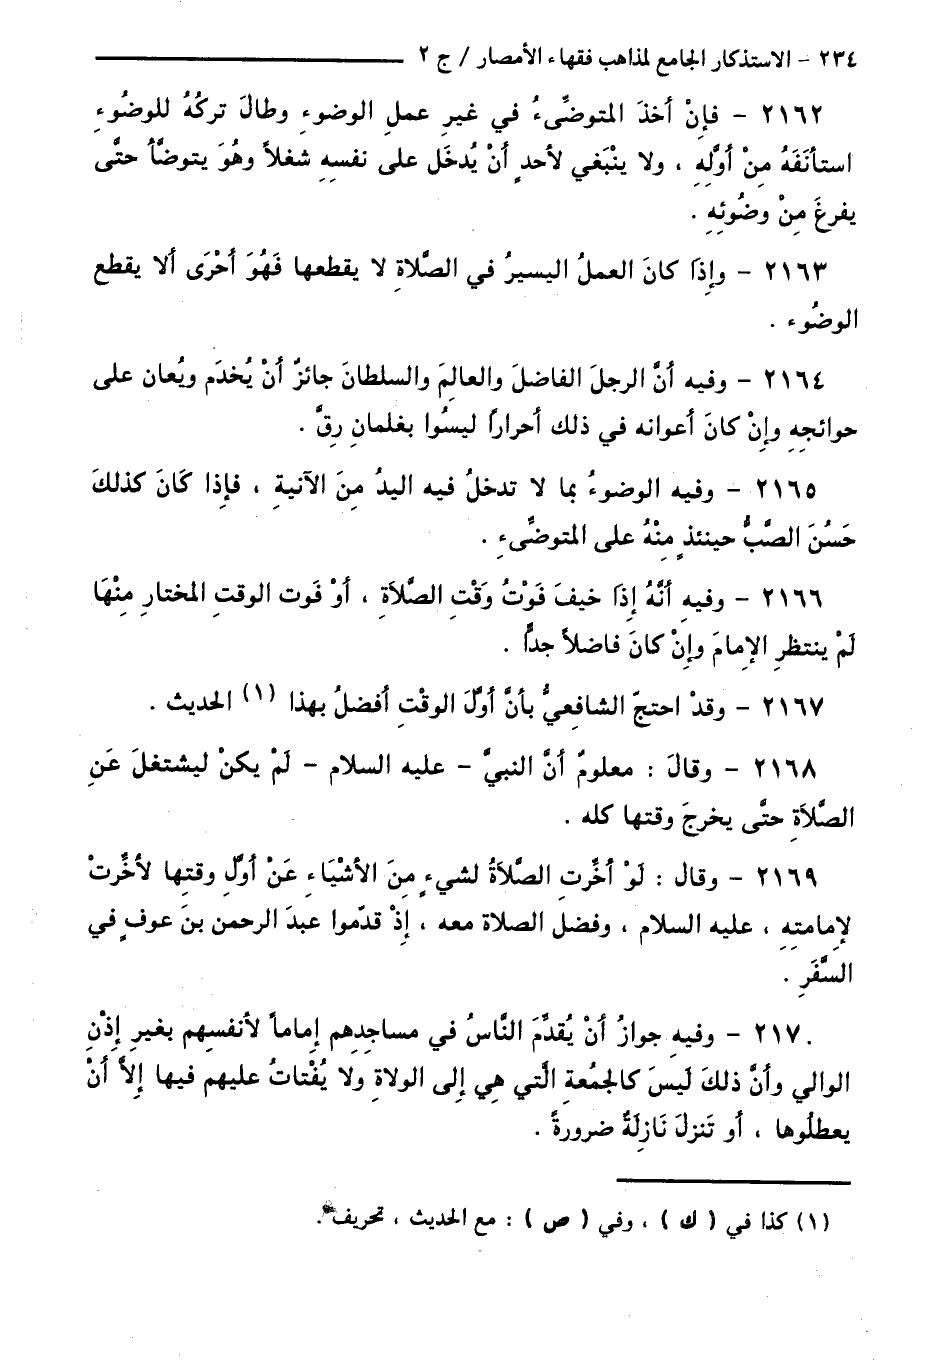 ٢٣٤ - الاستذكار الجامع لمذاهب فقهاء الأمصار / ج ٢
٢١٦٢ - فإنْ أخذَ المتوضِّىءُ في غيرِ عملِ الوضوءِ وطالَ تركُهُ للوضُوءِ
استأنَفَهُ مِنْ أوَّلِهِ ، ولا ينْبَغي لأحدٍ أنْ يُدخَل على نفسهِ شغلاً وهُوَ يتوضَّأُ حتَّى
يفرغَ مِنْ وضُوئِهِ .
٢١٦٣ - وإِذَا كانَ العملُ اليسيرُ في الصَّلاةِ لا يقطعها فَهُوَ أحْرَى ألا يقطع
الوضُوء .
٢١٦٤ - وفيه أنَّ الرجلَ الفاضلَ والعالِمَ والسلطانَ جائزٌ أنْ يُخدَم ويُعان على
حوائجِهِ وإِنْ كانَ أعوانه في ذلك أحراراً ليسُوا بغلمانِ رقَّ .
٢١٦٥ - وفيه الوضوءُ بما لا تدخلُ فيه اليدُ منَ الآنيةِ ، فإِذا كَانَ كذلكَ
حَسُنَ الصَّبُّ حينئذٍ مِنْهُ على المتوضِّىءِ .
٢١٦٦ - وفيهِ أنَّهُ إِذَا خيفَ فَوْتُ وَقْتِ الصَّلَاةِ ، أوْ فَوت الوقتِ المختارِ مِنْهَا
لَمْ ينتظرِ الإِمامَ وإِنْ كانَ فاضلاً جداً .
٢١٦٧ - وقدْ احتجّ الشافعِيُّ بأنَّ أوَّلَ الوقْتِ أفضلُ بهذا (١) الحديث .
٢١٦٨ - وقالَ : معلومٌ أنَّ النبيَّ - عليه السلام - لَمْ يكنْ ليشتغلَ عَنِ
الصَّلَاةِ حتَّى يخرجَ وقتها كله .
٢١٦٩ - وقال : لَوْ أخَّرتِ الصَّلاَةُ لشيءٍ مِنَ الأشْيَاءِ عَنْ أوَّلِ وقتِها لأخَّرتْ
لإمامتِهِ ، عليه السلام ، وفضل الصلاة معه ، إِذْ قدّموا عبدَ الرحمن بنَ عوفٍ في
السَّفَرِ .
٢١٧٠ - وفيهِ جوازُ أنْ يُقدَّمَ النَّاسُ في مساجِدِهم إِماماً لأنفسِهم بغيرِ إِذْنِ
الوالي وأنَّ ذلكَ لَيسَ كالجمُعةِ الَّتي هِي إِلى الولاةِ ولا يُفْتاتُ عليهم فيها إِلاَّ أنْ
يعطلُوها ، أو تَنزلَ نَازِلَةٌ ضرورةً .
(١) كذا في ( ك ) ، وفي ( ص ) : مع الحديث ، تحريف .